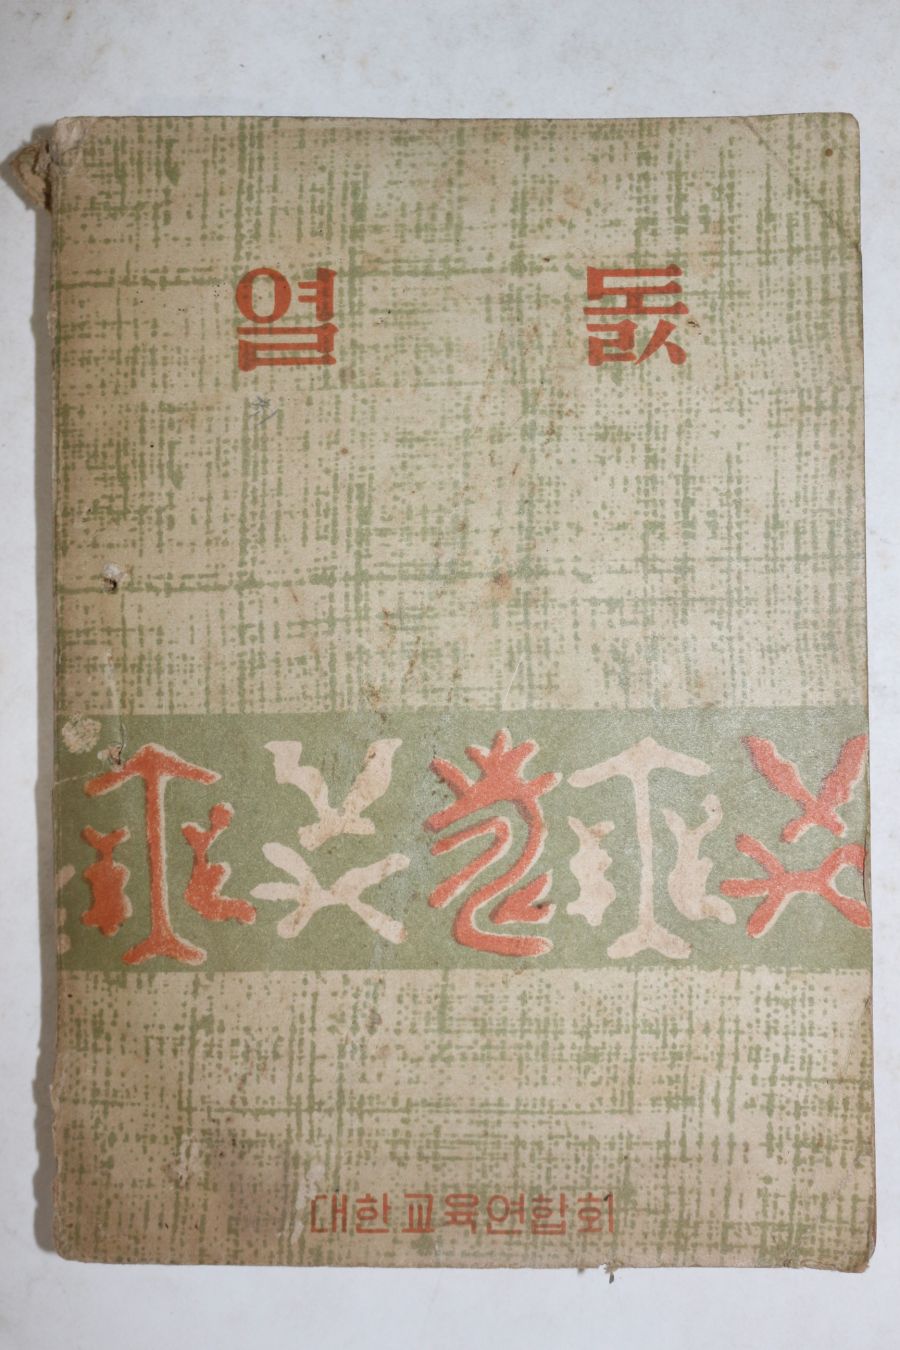 열 돐
대한교육연합회